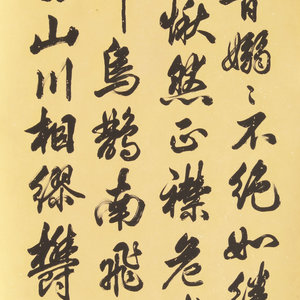 音嫋〻不絕如縷
愀然正襟危
烏鵲南飛
山川相繆鬱